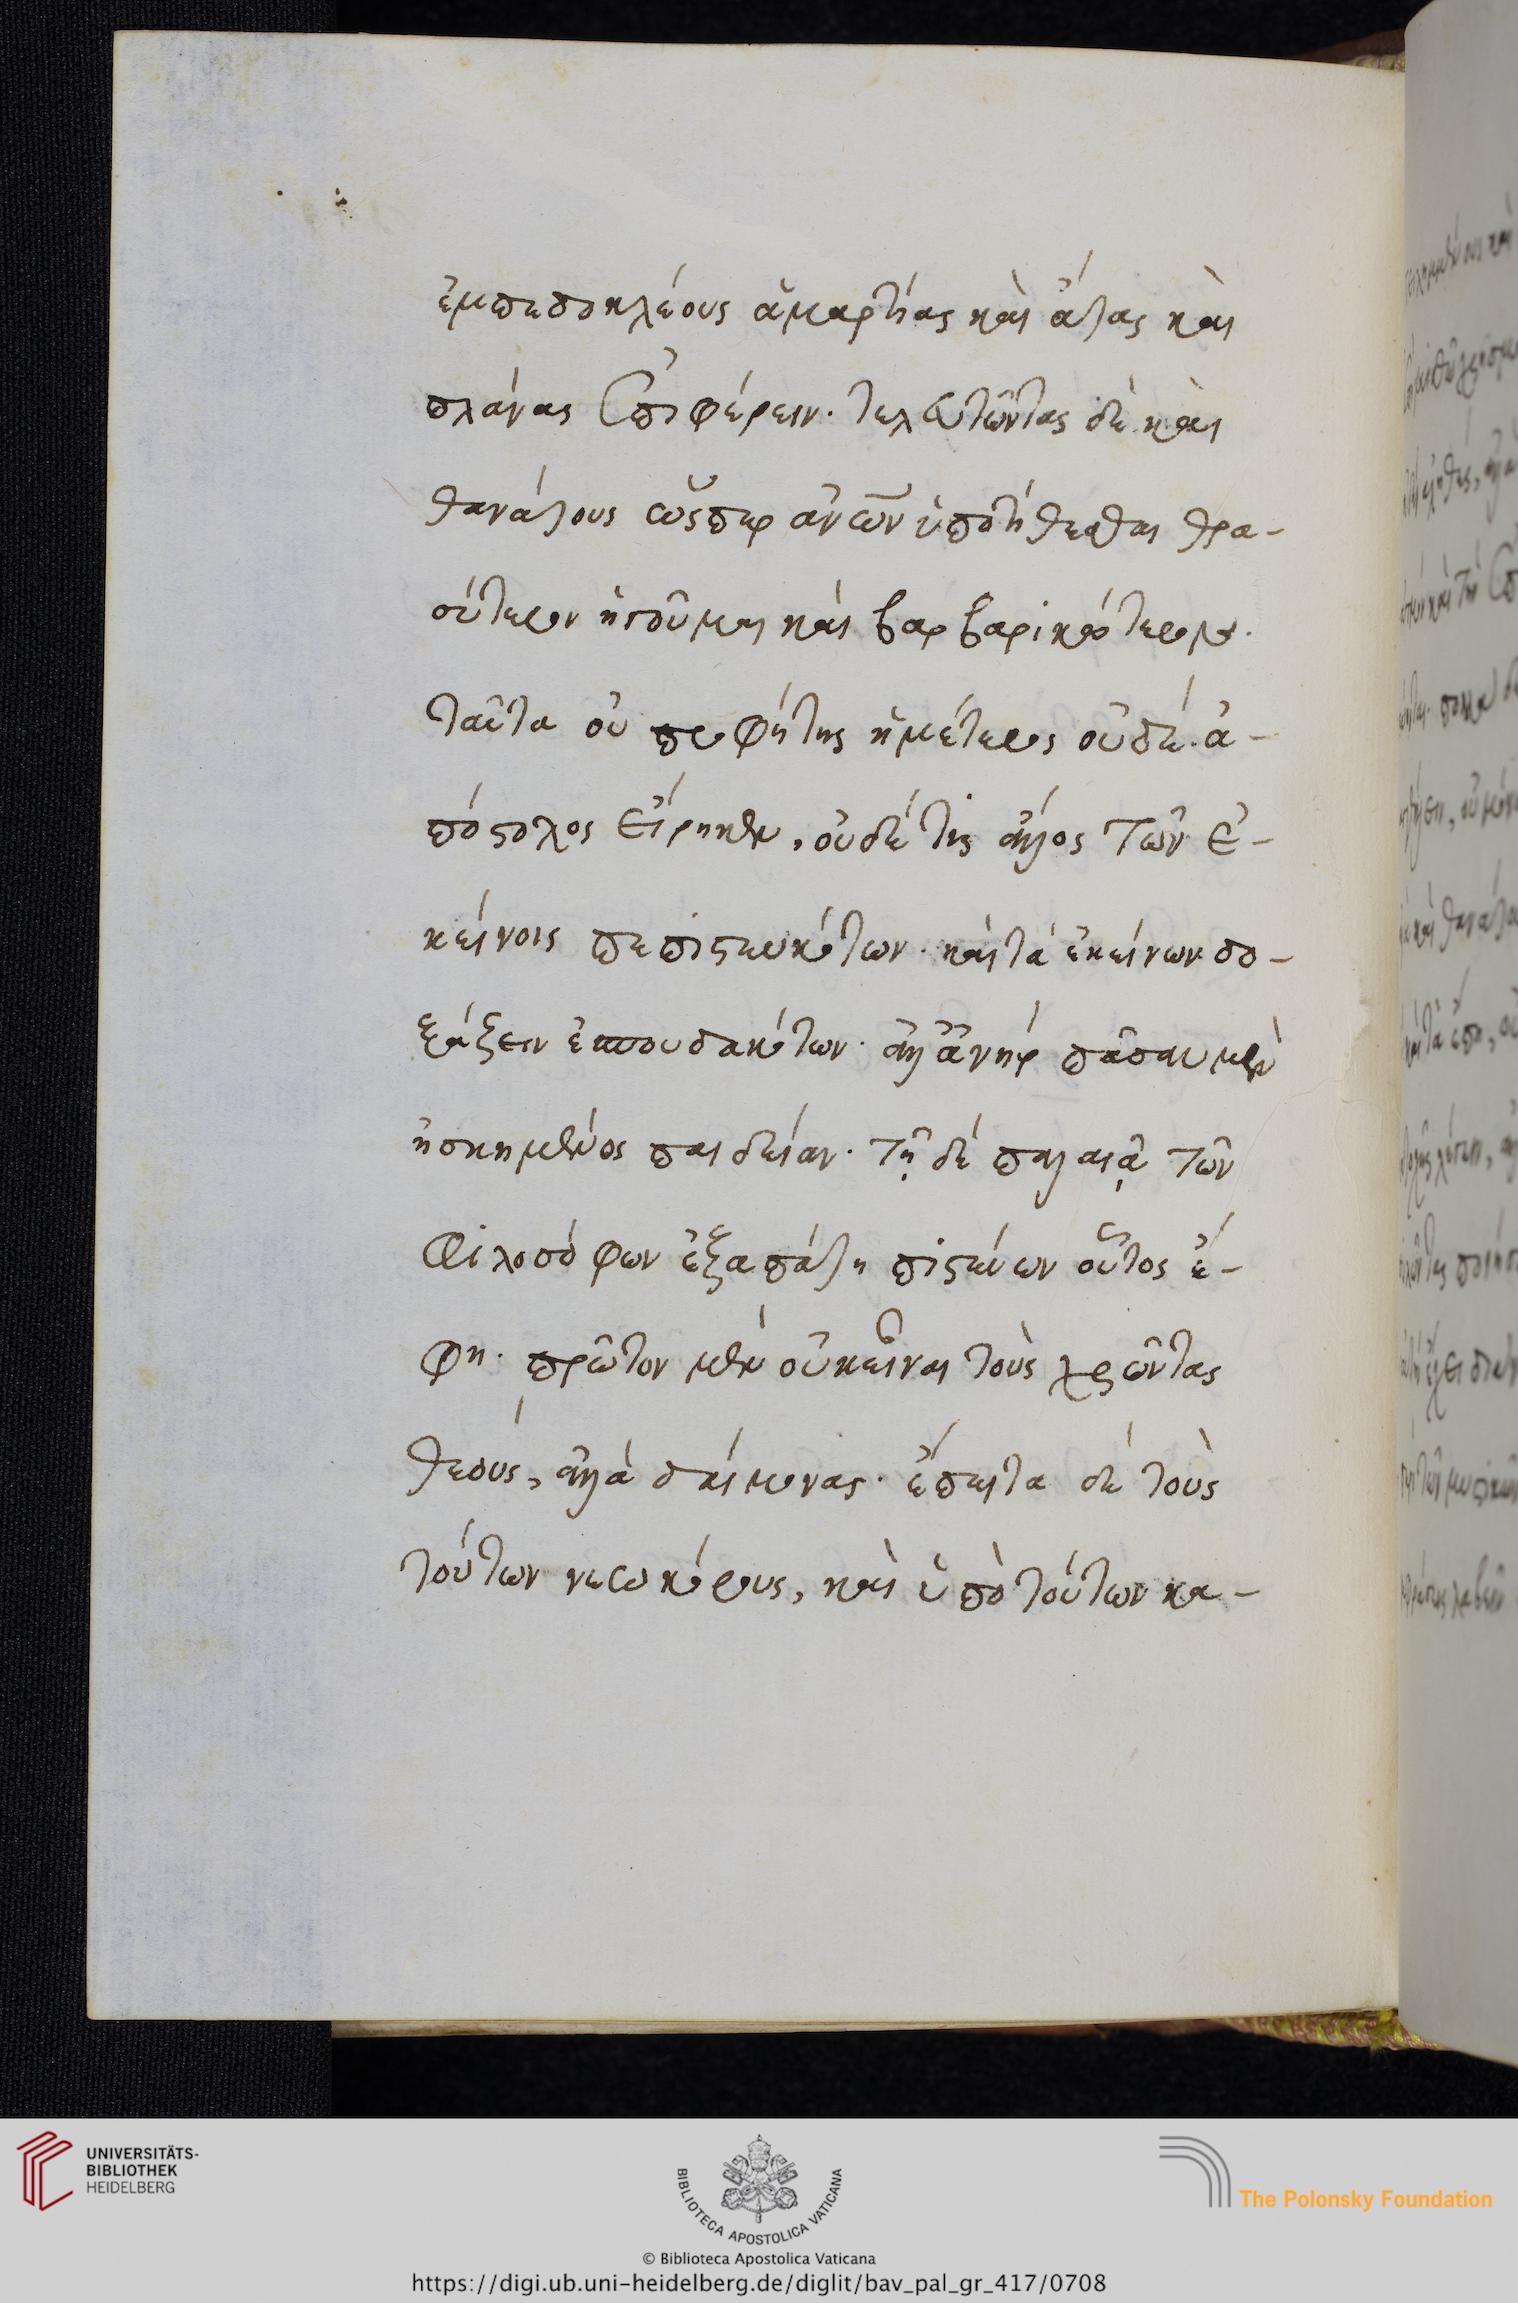 ἐμπεδοκλέους ἁμαρτίας καὶ ἄτας καὶ
πλάνας ἐπιφέρειν. τελευτῶντας δὲ καὶ
θανάτους ὥσπερ ἀν̅ω̅ν ὑποτίθεσθαι θρα-
σύτερον ἡγοῦμαι καὶ βαρβαρικώτερον.
ταῦτα οὐ προφήτης ἡμέτερος οὐδὲ ἀ-
πόστολος εἴρηκεν, οὐδέ τις ἄλλος τῶν ἐ-
κείνοις πεπιστευκότων. καὶ τὰ ἐκείνων δο-
ξάζειν ἐσπουδακότων. ἀλλ' ἀνὴρ πᾶσαν μὲν
ἠσκημένος παιδείαν. τῇ δὲ παλαιᾷ τῶν
φιλοσόφων ἐξαπάτη πιστεύων οὗτος ἔ-
φη. πρῶτον μὲν οὐκ εἶναι τοὺς χρῶντας
θεούς, ἀλλὰ δαίμονας. ἔπειτα δὲ τοὺς
τούτων νεωκόρους, καὶ ὑπὸ τούτων κα-
UNIVERSITÄTS-
BIBLIOTHEK
HEIDELBERG
BIBLIOTECA APOSTOLICA VATICANA
The Polonsky Foundation
© Biblioteca Apostolica Vaticana
https://digi.ub.uni-heidelberg.de/diglit/bav_pal_gr_417/0708